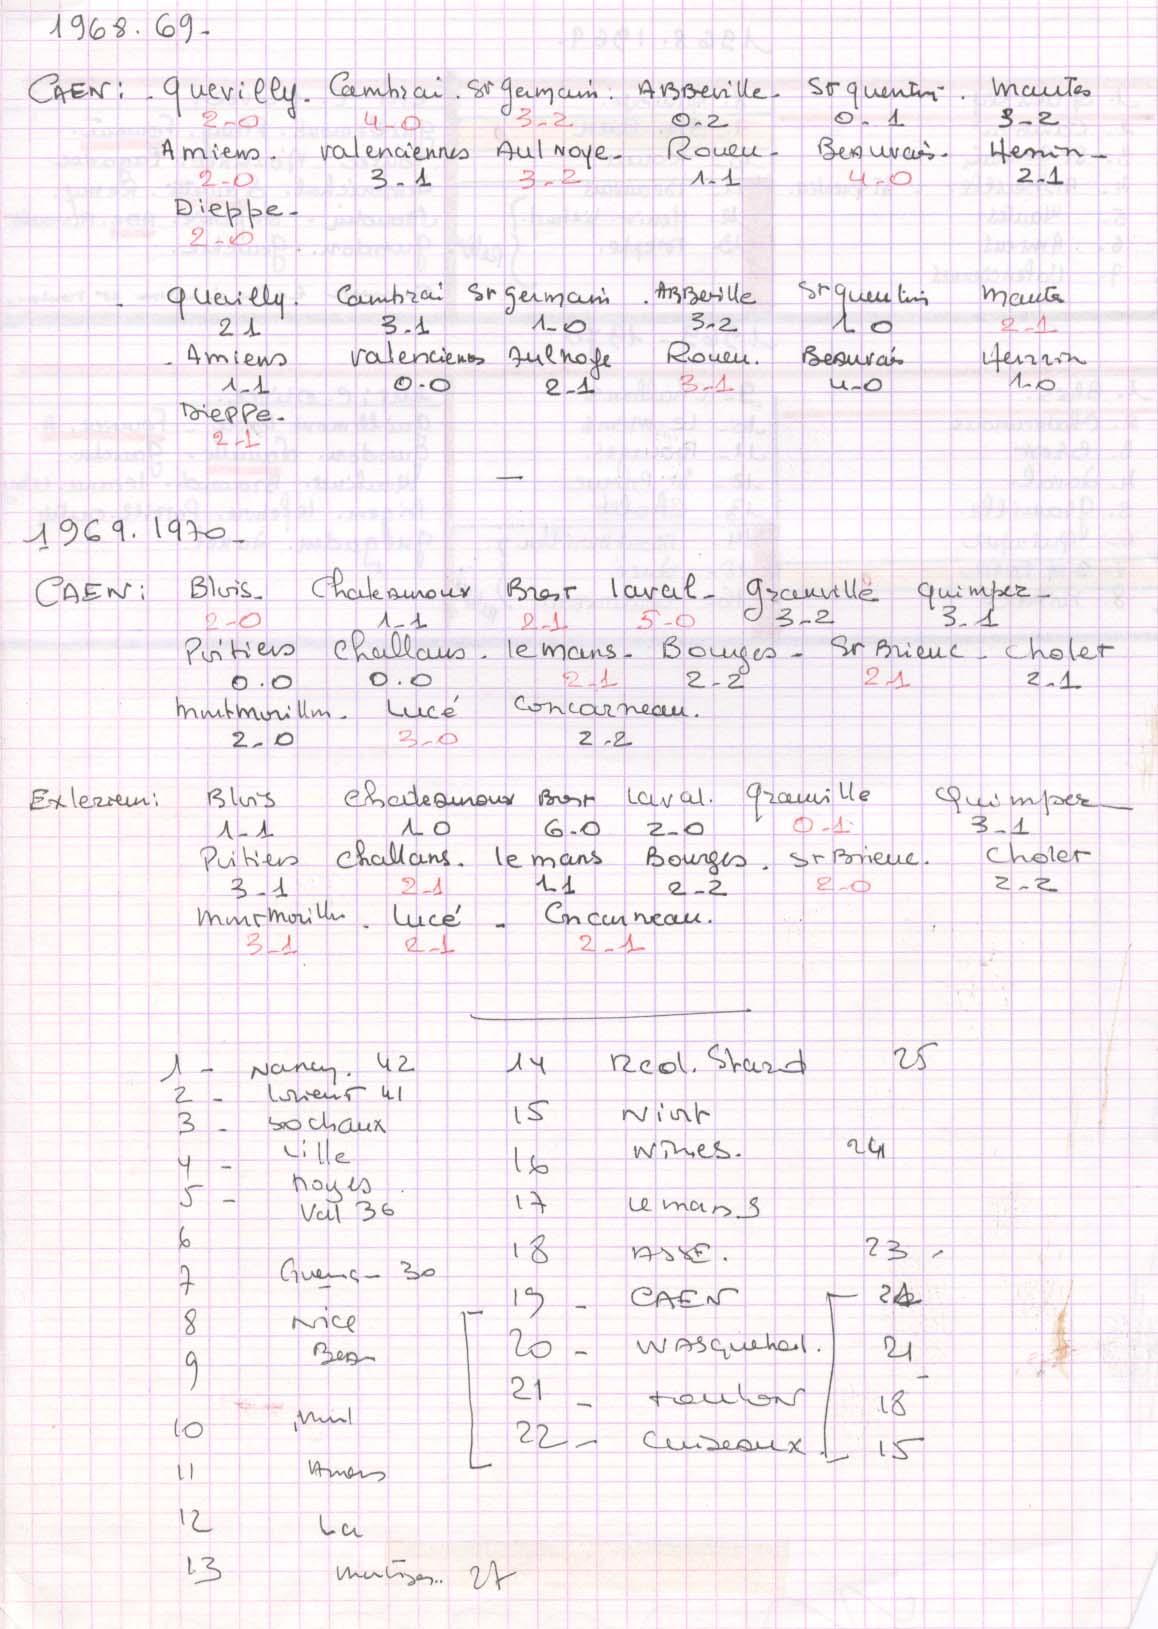 1968.69-
CAEN: . Quevilly. Cambrai . St germain. ABBeville. St quentin . mantes
2-0 4-0 3-2 0.2 0.1 3-2
Amiens. Valenciennes AulNoye- Rouen- Beauvais. Henin-
2-0 3.1 3-2 1-1 4-0 2.1
Dieppe-
2-0
. Quevilly. Cambrai St germain . ABBeville St quentin mantes
21 3.1 1-0 3-2 1 0 2-1
. Amiens Valenciennes Aulnoye Rouen. Beauvais Henin
1-1 0-0 2-1 3-1 4-0 1.0
Dieppe-
2-1
—
1969.1970-
CAEN: Blois- Chateauroux Brest laval- granville quimper-
2-0 1-1 2-1 5-0 3-2 3-1
Poitiers Challans. le mans- Bourges- St Brieuc- Cholet
0.0 0.0 2-1 2-2 21 2-1
montmorillon. Lucé Concarneau.
2-0 3-0 2-2
Exterieur: Blois Chateauroux Brest Laval. granville Quimper-
1-1 1 0 6-0 2-0 0-1 3-1
Poitiers Challans. le mans Bourges. St Brieuc. Cholet
3-1 2-1 11 2-2 2-0 2-2
montmorillon. Lucé - Concarneau.
3-1 2-1 2-1
1 - Nancy. 42 14 Red. Stard 25
2 - Lorient 41
3 - sochaux 15 Niort
4 - Lille 16 Nîmes. 24
5 - Troyes
Val 36 17 Le mans
6 18 ASSE. 23
7 Gueug- 30
19 - CAEN
8 Nice 20 - WAsquehal. 21
9 Beau
21 - toulon 18
10 22 - Cuiseaux 15
11 Amiens
12 La
13 27